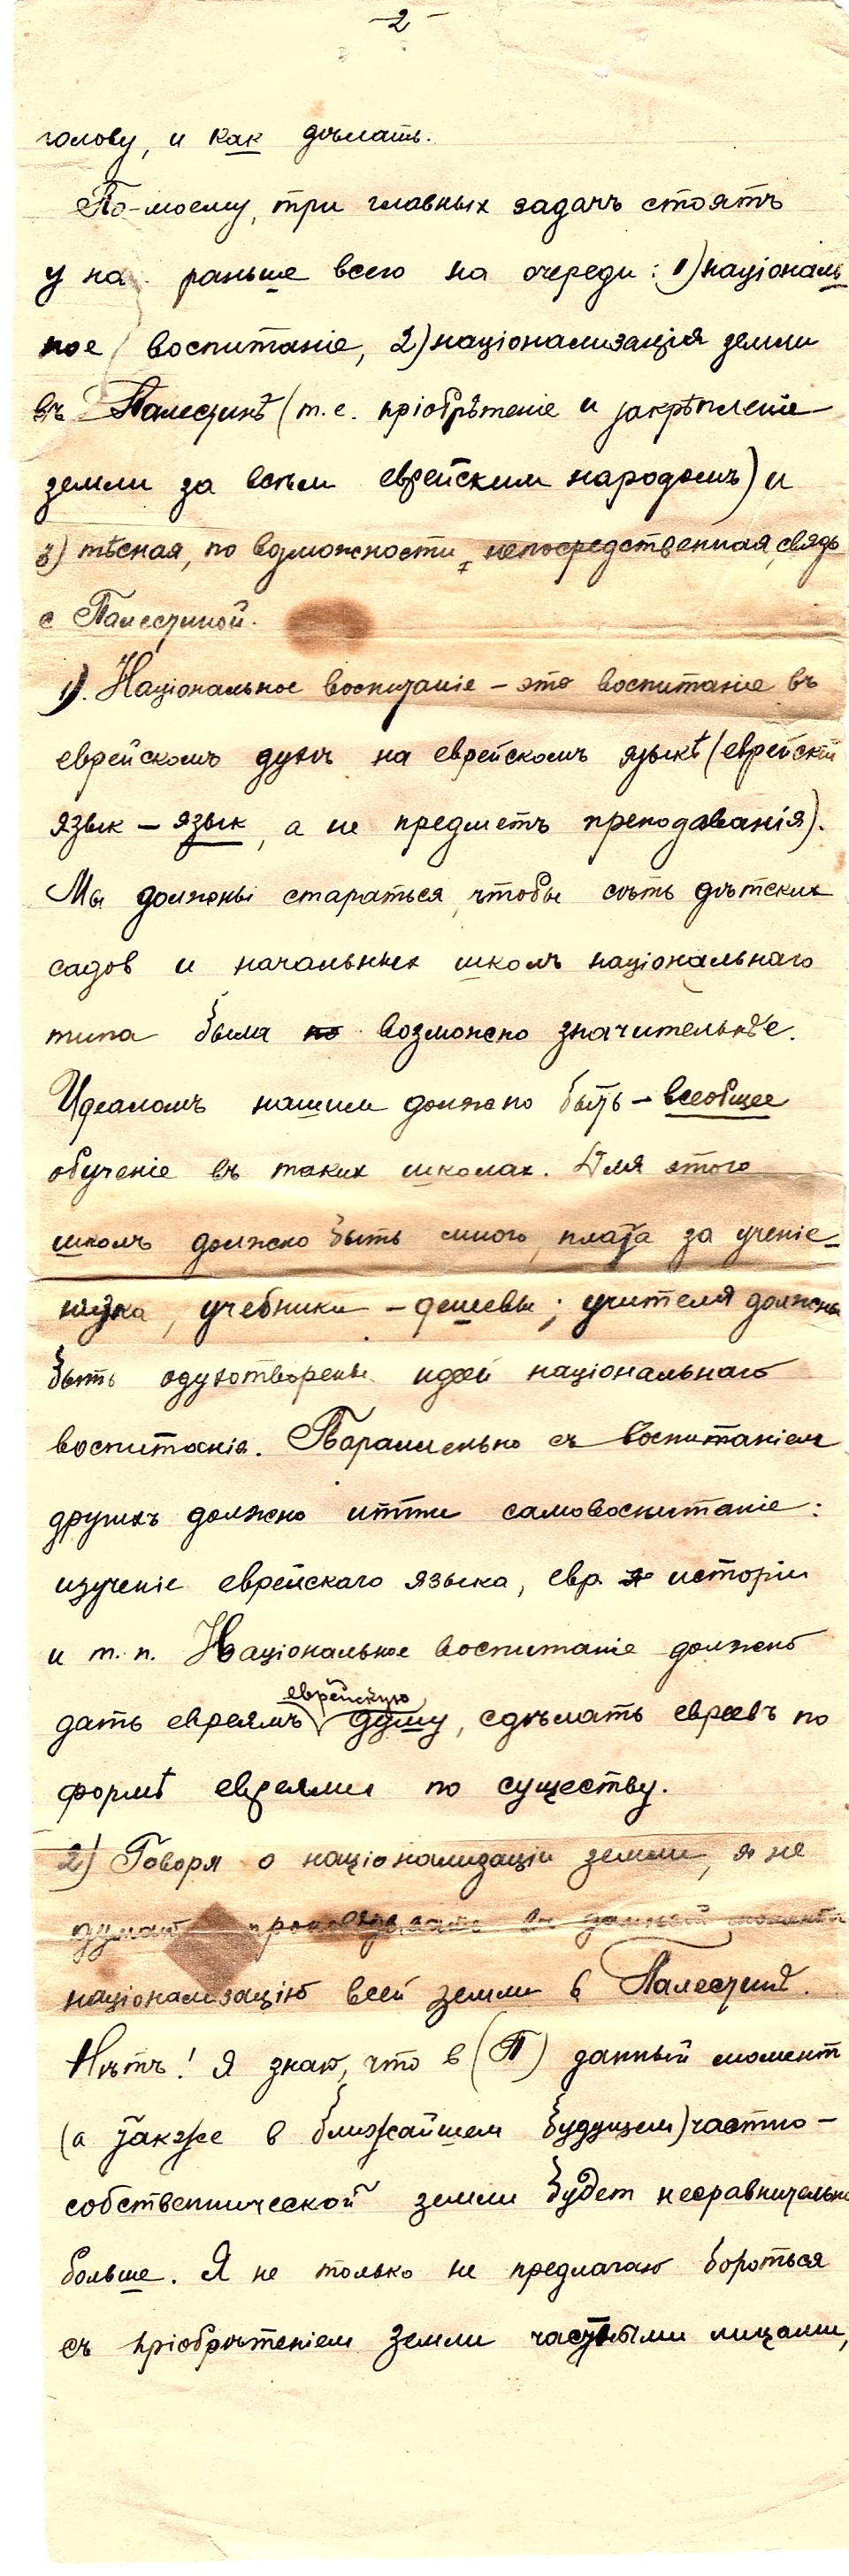 -2-
голову, и как дѣлать.
По-моему, три главных задачъ стоятъ
у на раньше всего на очереди: 1) національ
ное воспитаніе, 2) націонализація земли
въ Палестинѣ (т. е. пріобрѣтеніе и закрѣпленіе
земли за всѣм еврейским народомъ) и
3) тѣсная, по возможности, непосредственная, связь
с Палестиной.
1). Національное воспитаніе - это воспитаніе въ
еврейскомъ духѣ на еврейскомъ языкѣ (еврейскій
язык - язык, а не предметъ преподаванія).
Мы должны стараться, чтобы сѣть дѣтских
садов и начальных школъ національнаго
типа была по возможно значительнѣе.
Идеаломъ нашим должно быть - всеобщее
обученіе въ таких школах. Для этого
школъ должно быть много, плата за ученіе -
низка, учебники - дешевы; учителя должны
быть одухотворены идеей національнаго
воспитанія. Параллельно съ воспитаніем
другихъ должно итти самовоспитаніе:
изученіе еврейскаго языка, евр. я исторіи
и т. п. Національное воспитаніе должно
дать евреямъ еврейскую душу, сдѣлать евреевъ по
формѣ евреями по существу.
2) Говоря о націонализаціи земли, я не
думаю проповѣдывать въ данный моментъ
націонализацію всей земли в Палестинѣ.
Нѣтъ! Я знаю, что в (П) данный момент
(а также в ближайшем будущем) частно-
собственнической земли будет несравнительно
больше. Я не только не предлагаю бороться
съ пріобрѣтеніем земли частными лицами,